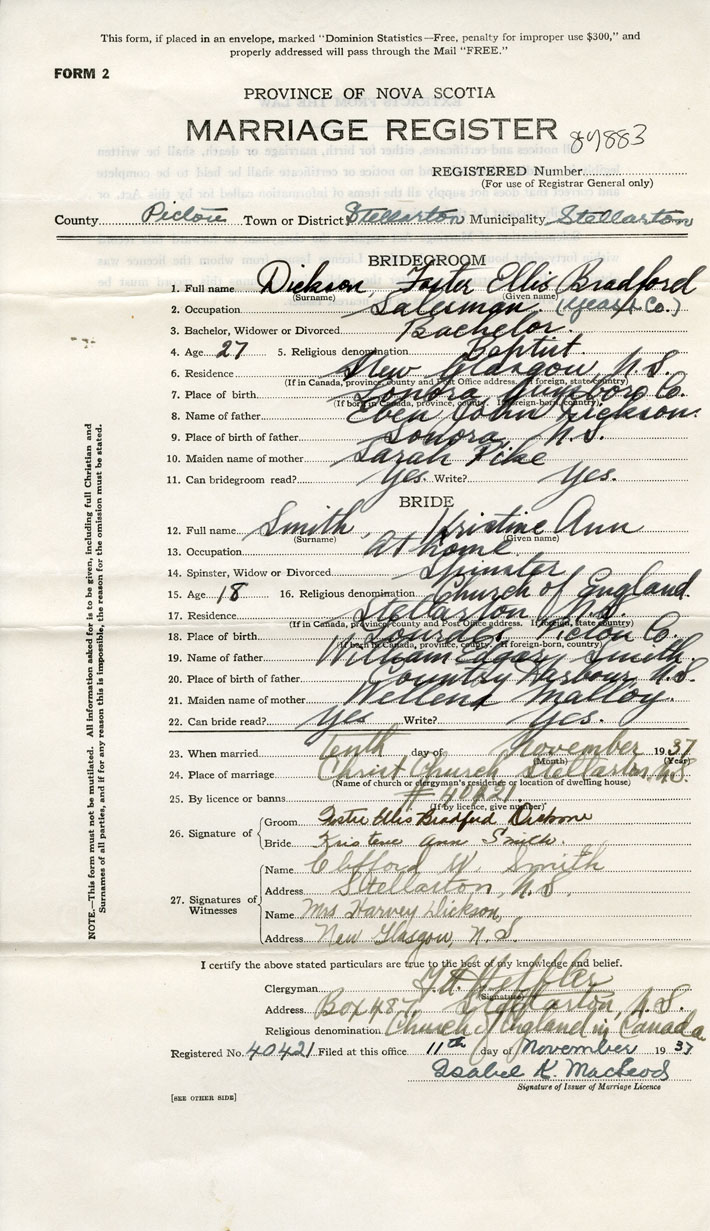 This form, if placed in an envelope, marked "Dominion Statistics—Free, penalty for improper use $300," and
properly addressed will pass through the Mail "FREE."
FORM 2
PROVINCE OF NOVA SCOTIA
MARRIAGE REGISTER
REGISTERED Number
(For use of Registrar General only)
County Pictou Town or District Stellarton Municipality Stellarton
BRIDEGROOM
1. Full name Dickson, Foster Ellis Bradford
(Surname) (Given name)
2. Occupation Salesman
3. Bachelor, Widower or Divorced Bachelor.
4. Age 27 5. Religious denomination Baptist.
6. Residence New Glasgow, N.S.
(If in Canada, province, county and Post Office address. If foreign, state country)
7. Place of birth Sonora, Guysboro Co.
(If born in Canada, province, county. If foreign-born, country)
8. Name of father Eben John Dickson.
9. Place of birth of father Sonora, N.S.
10. Maiden name of mother Sarah Pike
11. Can bridegroom read? Yes. Write? Yes.
BRIDE
12. Full name Smith Kristine Ann
(Surname) (Given name)
13. Occupation At home
14. Spinster, Widow or Divorced Spinster
15. Age 18 16. Religious denomination Church of England.
17. Residence Stellarton N.S.
(If in Canada, province, county and Post Office address. If foreign, state country)
18. Place of birth Lourdes Pictou Co.
(If born in Canada, province, county. If foreign-born, country)
19. Name of father William Edgar Smith.
20. Place of birth of father Country Harbour N.S.
21. Maiden name of mother Wellena Malloy.
22. Can bride read? Yes Write? Yes.
23. When married Tenth day of November 1937
(Month) (Year)
24. Place of marriage Christ Church Stellarton N.S.
(Name of church or clergyman's residence or location of dwelling house)
25. By licence or banns #40421
(If by licence, give number)
26. Signature of
Groom Foster Ellis Bradford Dickson
Bride Kristene Ann Smith.
27. Signatures of Witnesses
Name Clifford W. Smith
Address Stellarton, N.S.
Name Mrs Harvey Dickson,
Address New Glasgow, N.S.
I certify the above stated particulars are true to the best of my knowledge and belief.
Clergyman
(Signature)
Address Box 487, Stellarton, N.S.
Religious denomination Church of England in Canada
Registered No. 40421 Filed at this office 11th day of November 1937
Isabel K. MacLeod
Signature of Issuer of Marriage Licence
[SEE OTHER SIDE]
NOTE.—This form must not be mutilated. All information asked for is to be given, including full Christian and
Surnames of all parties, and if for any reason this is impossible, the reason for the omission must be stated.